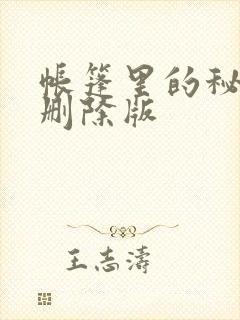 帐篷里的秘
删除版
王志涛